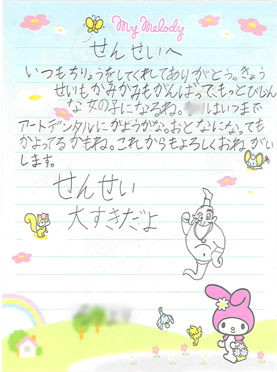 My Melody
せんせいへ
いつもちりょうをしてくれしてありがとう。きょう
せいもかみかみもがんばってもっとびじん
な女の子になるね。はいつまで
アートデンタルにかようかな。おとなになっても
かよってるかもね。これからもよろしくおねがい
します。
せんせい
大すきだよ
より